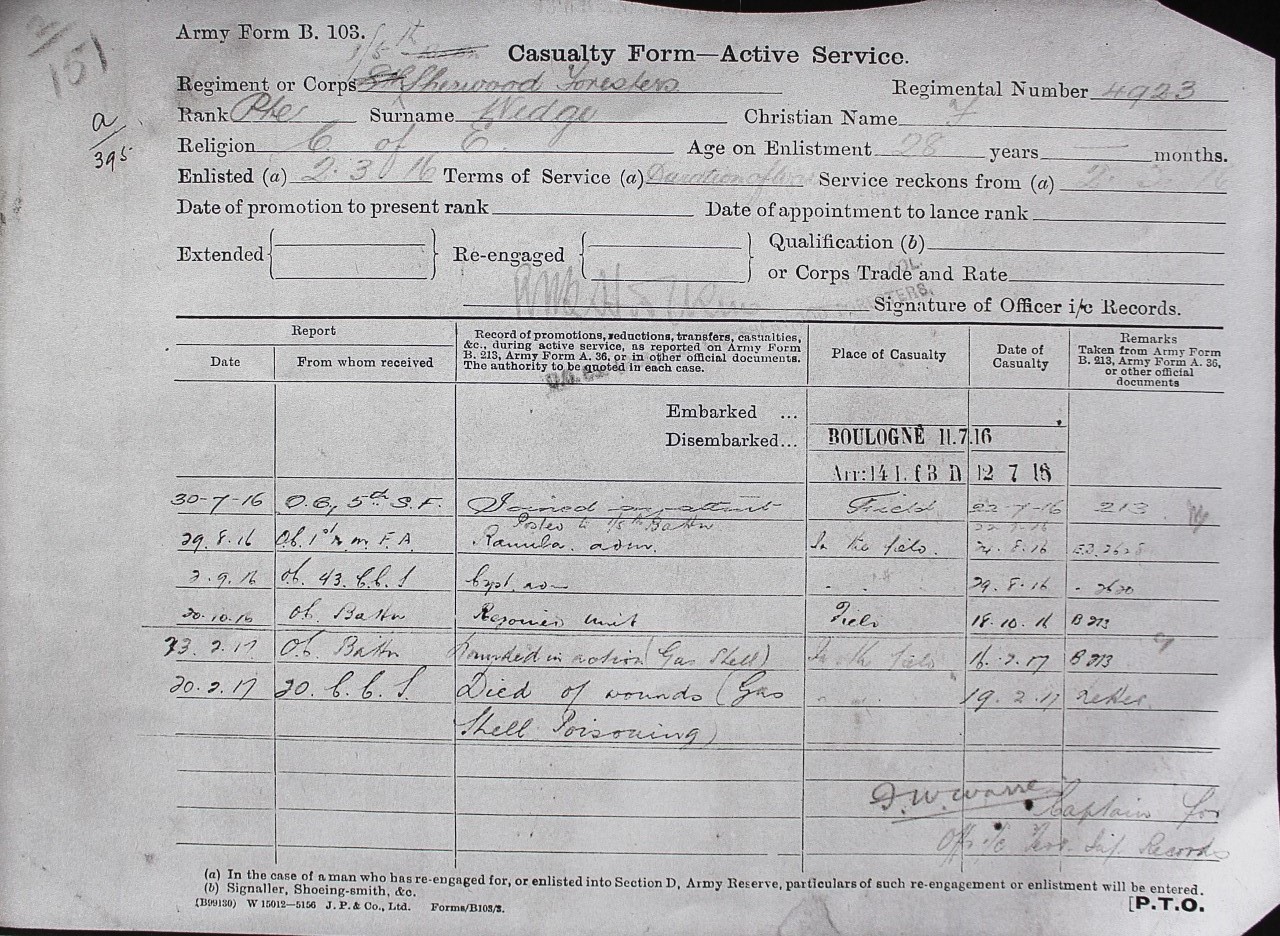 2/151
Army Form B. 103.
1/5th
Casualty Form—Active Service.
Regiment or Corps Sherwood Foresters Regimental Number 4923
Rank Pte Surname Wedge Christian Name F
a/395
Religion C. of E. Age on Enlistment 28 years — months.
Enlisted (a) 2.3.16 Terms of Service (a) Duration of War Service reckons from (a) 2. 3. 16
Date of promotion to present rank Date of appointment to lance rank
Extended Re-engaged Qualification (b)
or Corps Trade and Rate
COL.
FORESTERS,
Signature of Officer i/c Records.
Report
Date From whom received
Record of promotions, reductions, transfers, casualties, &c., during active service, as reported on Army Form B. 213, Army Form A. 36, or in other official documents. The authority to be quoted in each case.
Place of Casualty
Date of Casualty
Remarks Taken from Army Form B. 213, Army Form A. 36, or other official documents
Embarked ...
Disembarked... BOULOGNE 11.7.16
Arr: 14 I. B D 12 7 16
30-7-16 O.C, 5th S.F. Joined Field 22-7-16 213
Posted to 1/5th Battn
29.8.16 F.A. adm. In the field. 24.8.16
2.9.16 43. C.C.S 29.8.16 - 2620
20.10.16 Battn Rejoined Unit Field 18.10.16 B 213
23.2.17 Battn Wounded in action (Gas Shell) In the field 16.2.17 B 213
20.2.17 20. C.C.S. Died of wounds (Gas 19.2.17 Letter
Shell Poisoning)
Captain for
Off i/c Terr. Inf. Records
(a) In the case of a man who has re-engaged for, or enlisted into Section D, Army Reserve, particulars of such re-engagement or enlistment will be entered.
(b) Signaller, Shoeing-smith, &c.
(B99130) W 15012—5156 J. P. & Co., Ltd. Forms/B103/3. [P.T.O.